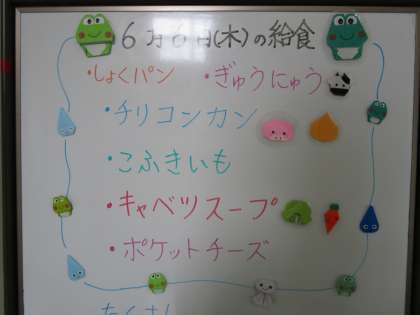 6月6日(木)の給食
・しょくパン ・ぎゅうにゅう
・チリコンカン
・こふきいも
・キャベツスープ
・ポケットチーズ